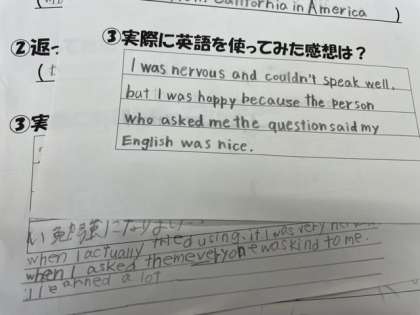 California in America )
③実際に英語を使ってみた感想は？
I was nervous and couldn't speak well.
but I was happy because the person
who asked me the question said my
English was nice.
②返
(
③実
い勉強になりました
when I actually tried using it I was very
when I asked them everyone was kind to me.
I learned a lot